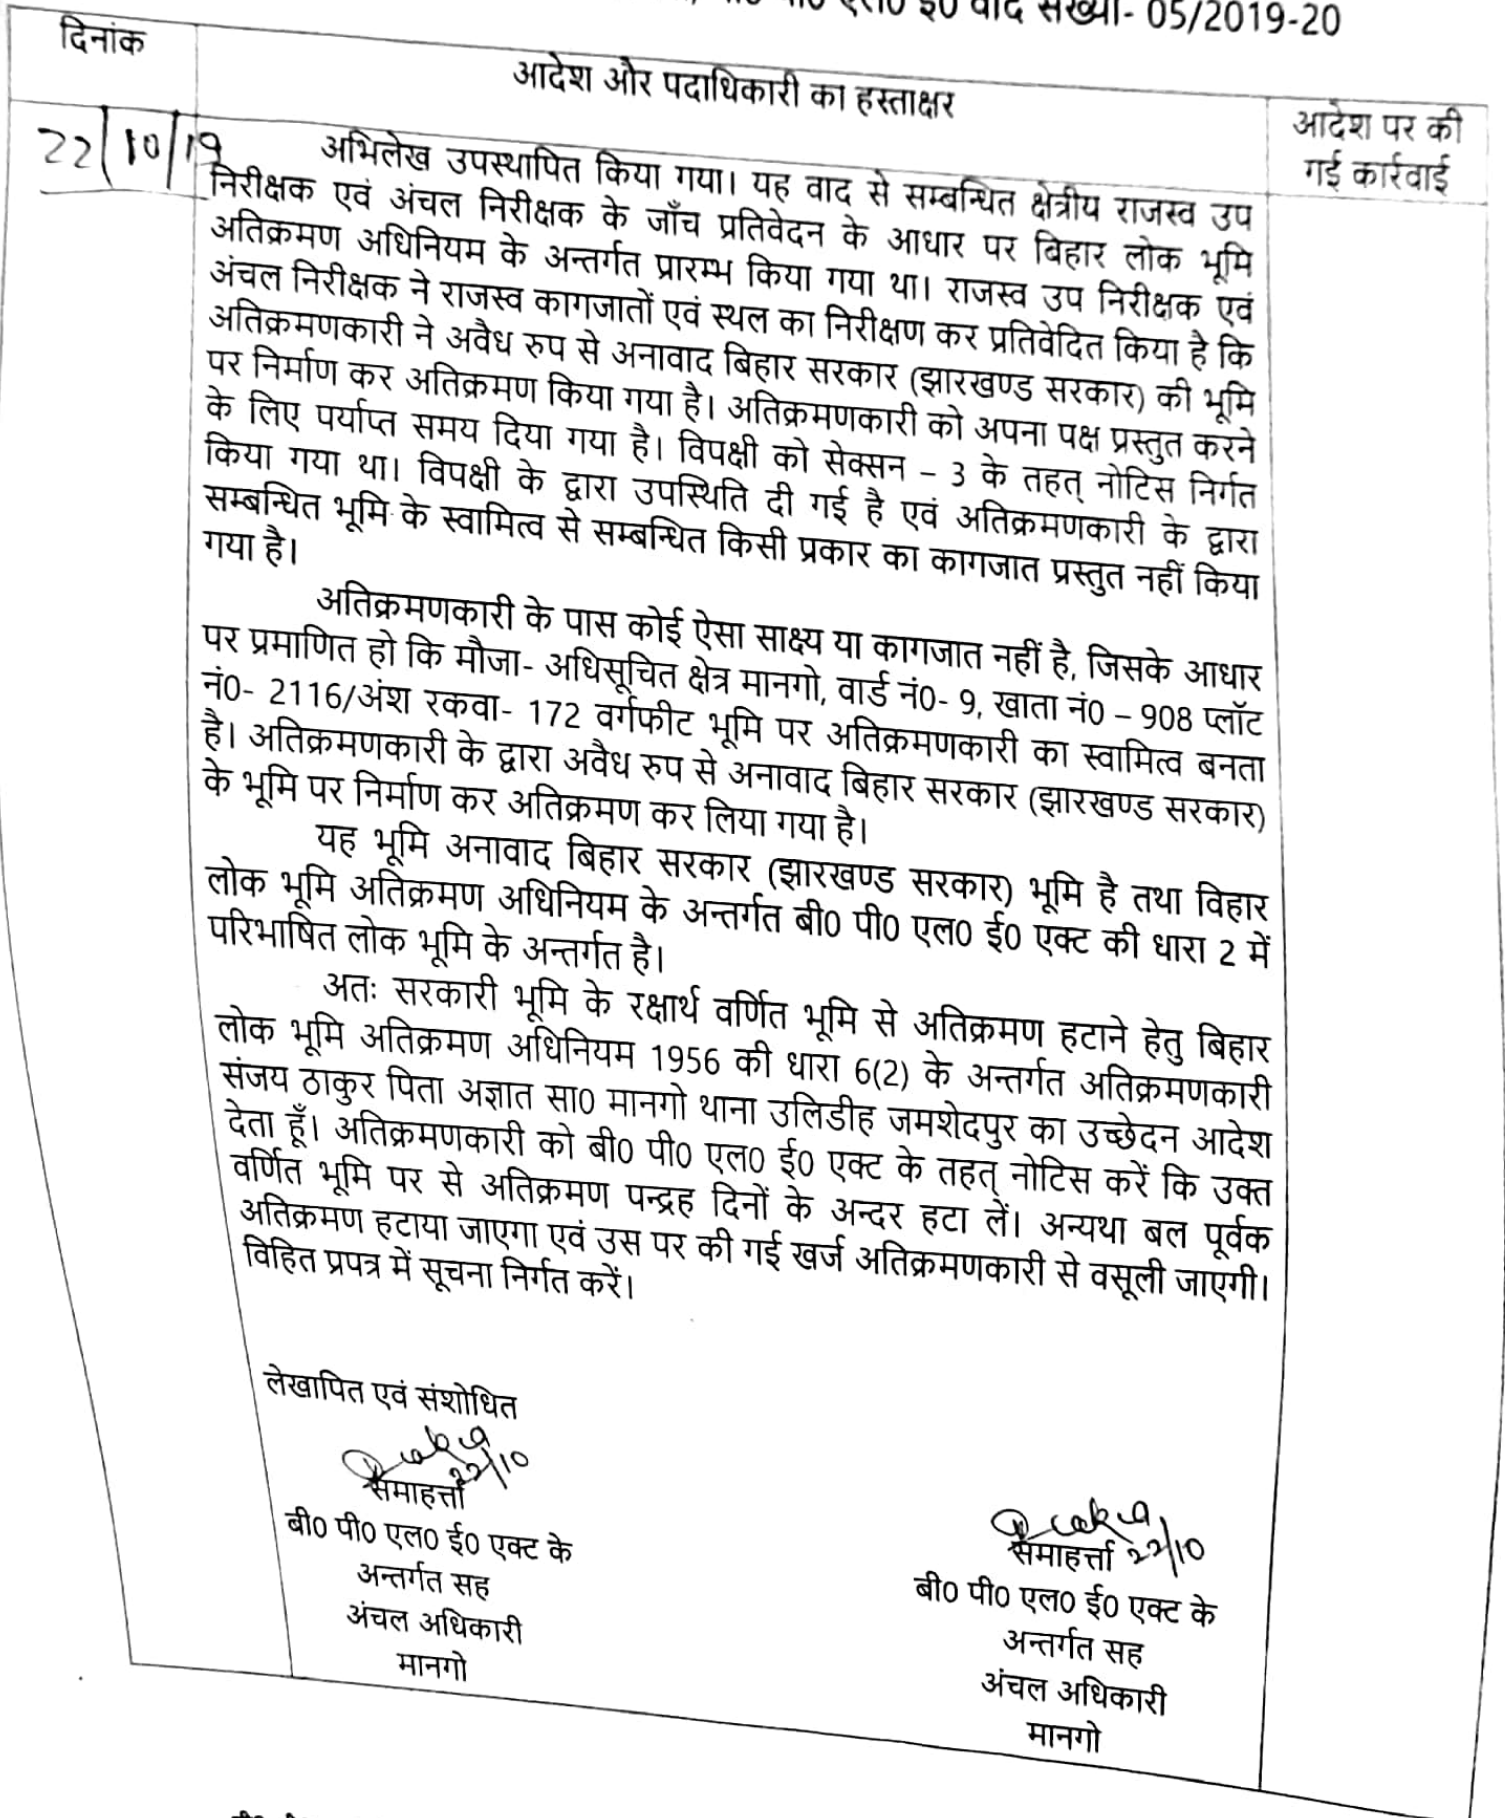 बी0 पी0 एल0 ई0 वाद संख्या- 05/2019-20
दिनांक
आदेश और पदाधिकारी का हस्ताक्षर
आदेश पर की
गई कार्रवाई
22/10/19
अभिलेख उपस्थापित किया गया। यह वाद से सम्बन्धित क्षेत्रीय राजस्व उप
निरीक्षक एवं अंचल निरीक्षक के जाँच प्रतिवेदन के आधार पर बिहार लोक भूमि
अतिक्रमण अधिनियम के अन्तर्गत प्रारम्भ किया गया था। राजस्व उप निरीक्षक एवं
अंचल निरीक्षक ने राजस्व कागजातों एवं स्थल का निरीक्षण कर प्रतिवेदित किया है कि
अतिक्रमणकारी ने अवैध रुप से अनावाद बिहार सरकार (झारखण्ड सरकार) की भूमि
पर निर्माण कर अतिक्रमण किया गया है। अतिक्रमणकारी को अपना पक्ष प्रस्तुत करने
के लिए पर्याप्त समय दिया गया है। विपक्षी को सेक्सन – 3 के तहत् नोटिस निर्गत
किया गया था। विपक्षी के द्वारा उपस्थिति दी गई है एवं अतिक्रमणकारी के द्वारा
सम्बन्धित भूमि के स्वामित्व से सम्बन्धित किसी प्रकार का कागजात प्रस्तुत नहीं किया
गया है।
अतिक्रमणकारी के पास कोई ऐसा साक्ष्य या कागजात नहीं है, जिसके आधार
पर प्रमाणित हो कि मौजा- अधिसूचित क्षेत्र मानगो, वार्ड नं0- 9, खाता नं0 – 908 प्लॉट
नं0- 2116/अंश रकवा- 172 वर्गफीट भूमि पर अतिक्रमणकारी का स्वामित्व बनता
है। अतिक्रमणकारी के द्वारा अवैध रुप से अनावाद बिहार सरकार (झारखण्ड सरकार)
के भूमि पर निर्माण कर अतिक्रमण कर लिया गया है।
यह भूमि अनावाद बिहार सरकार (झारखण्ड सरकार) भूमि है तथा विहार
लोक भूमि अतिक्रमण अधिनियम के अन्तर्गत बी0 पी0 एल0 ई0 एक्ट की धारा 2 में
परिभाषित लोक भूमि के अन्तर्गत है।
अतः सरकारी भूमि के रक्षार्थ वर्णित भूमि से अतिक्रमण हटाने हेतु बिहार
लोक भूमि अतिक्रमण अधिनियम 1956 की धारा 6(2) के अन्तर्गत अतिक्रमणकारी
संजय ठाकुर पिता अज्ञात सा0 मानगो थाना उलिडीह जमशेदपुर का उच्छेदन आदेश
देता हूँ। अतिक्रमणकारी को बी0 पी0 एल0 ई0 एक्ट के तहत् नोटिस करें कि उक्त
वर्णित भूमि पर से अतिक्रमण पन्द्रह दिनों के अन्दर हटा लें। अन्यथा बल पूर्वक
अतिक्रमण हटाया जाएगा एवं उस पर की गई खर्ज अतिक्रमणकारी से वसूली जाएगी।
विहित प्रपत्र में सूचना निर्गत करें।
लेखापित एवं संशोधित
22/10
समाहर्त्ता
बी0 पी0 एल0 ई0 एक्ट के
अन्तर्गत सह
अंचल अधिकारी
मानगो
समाहर्त्ता 22/10
बी0 पी0 एल0 ई0 एक्ट के
अन्तर्गत सह
अंचल अधिकारी
मानगो